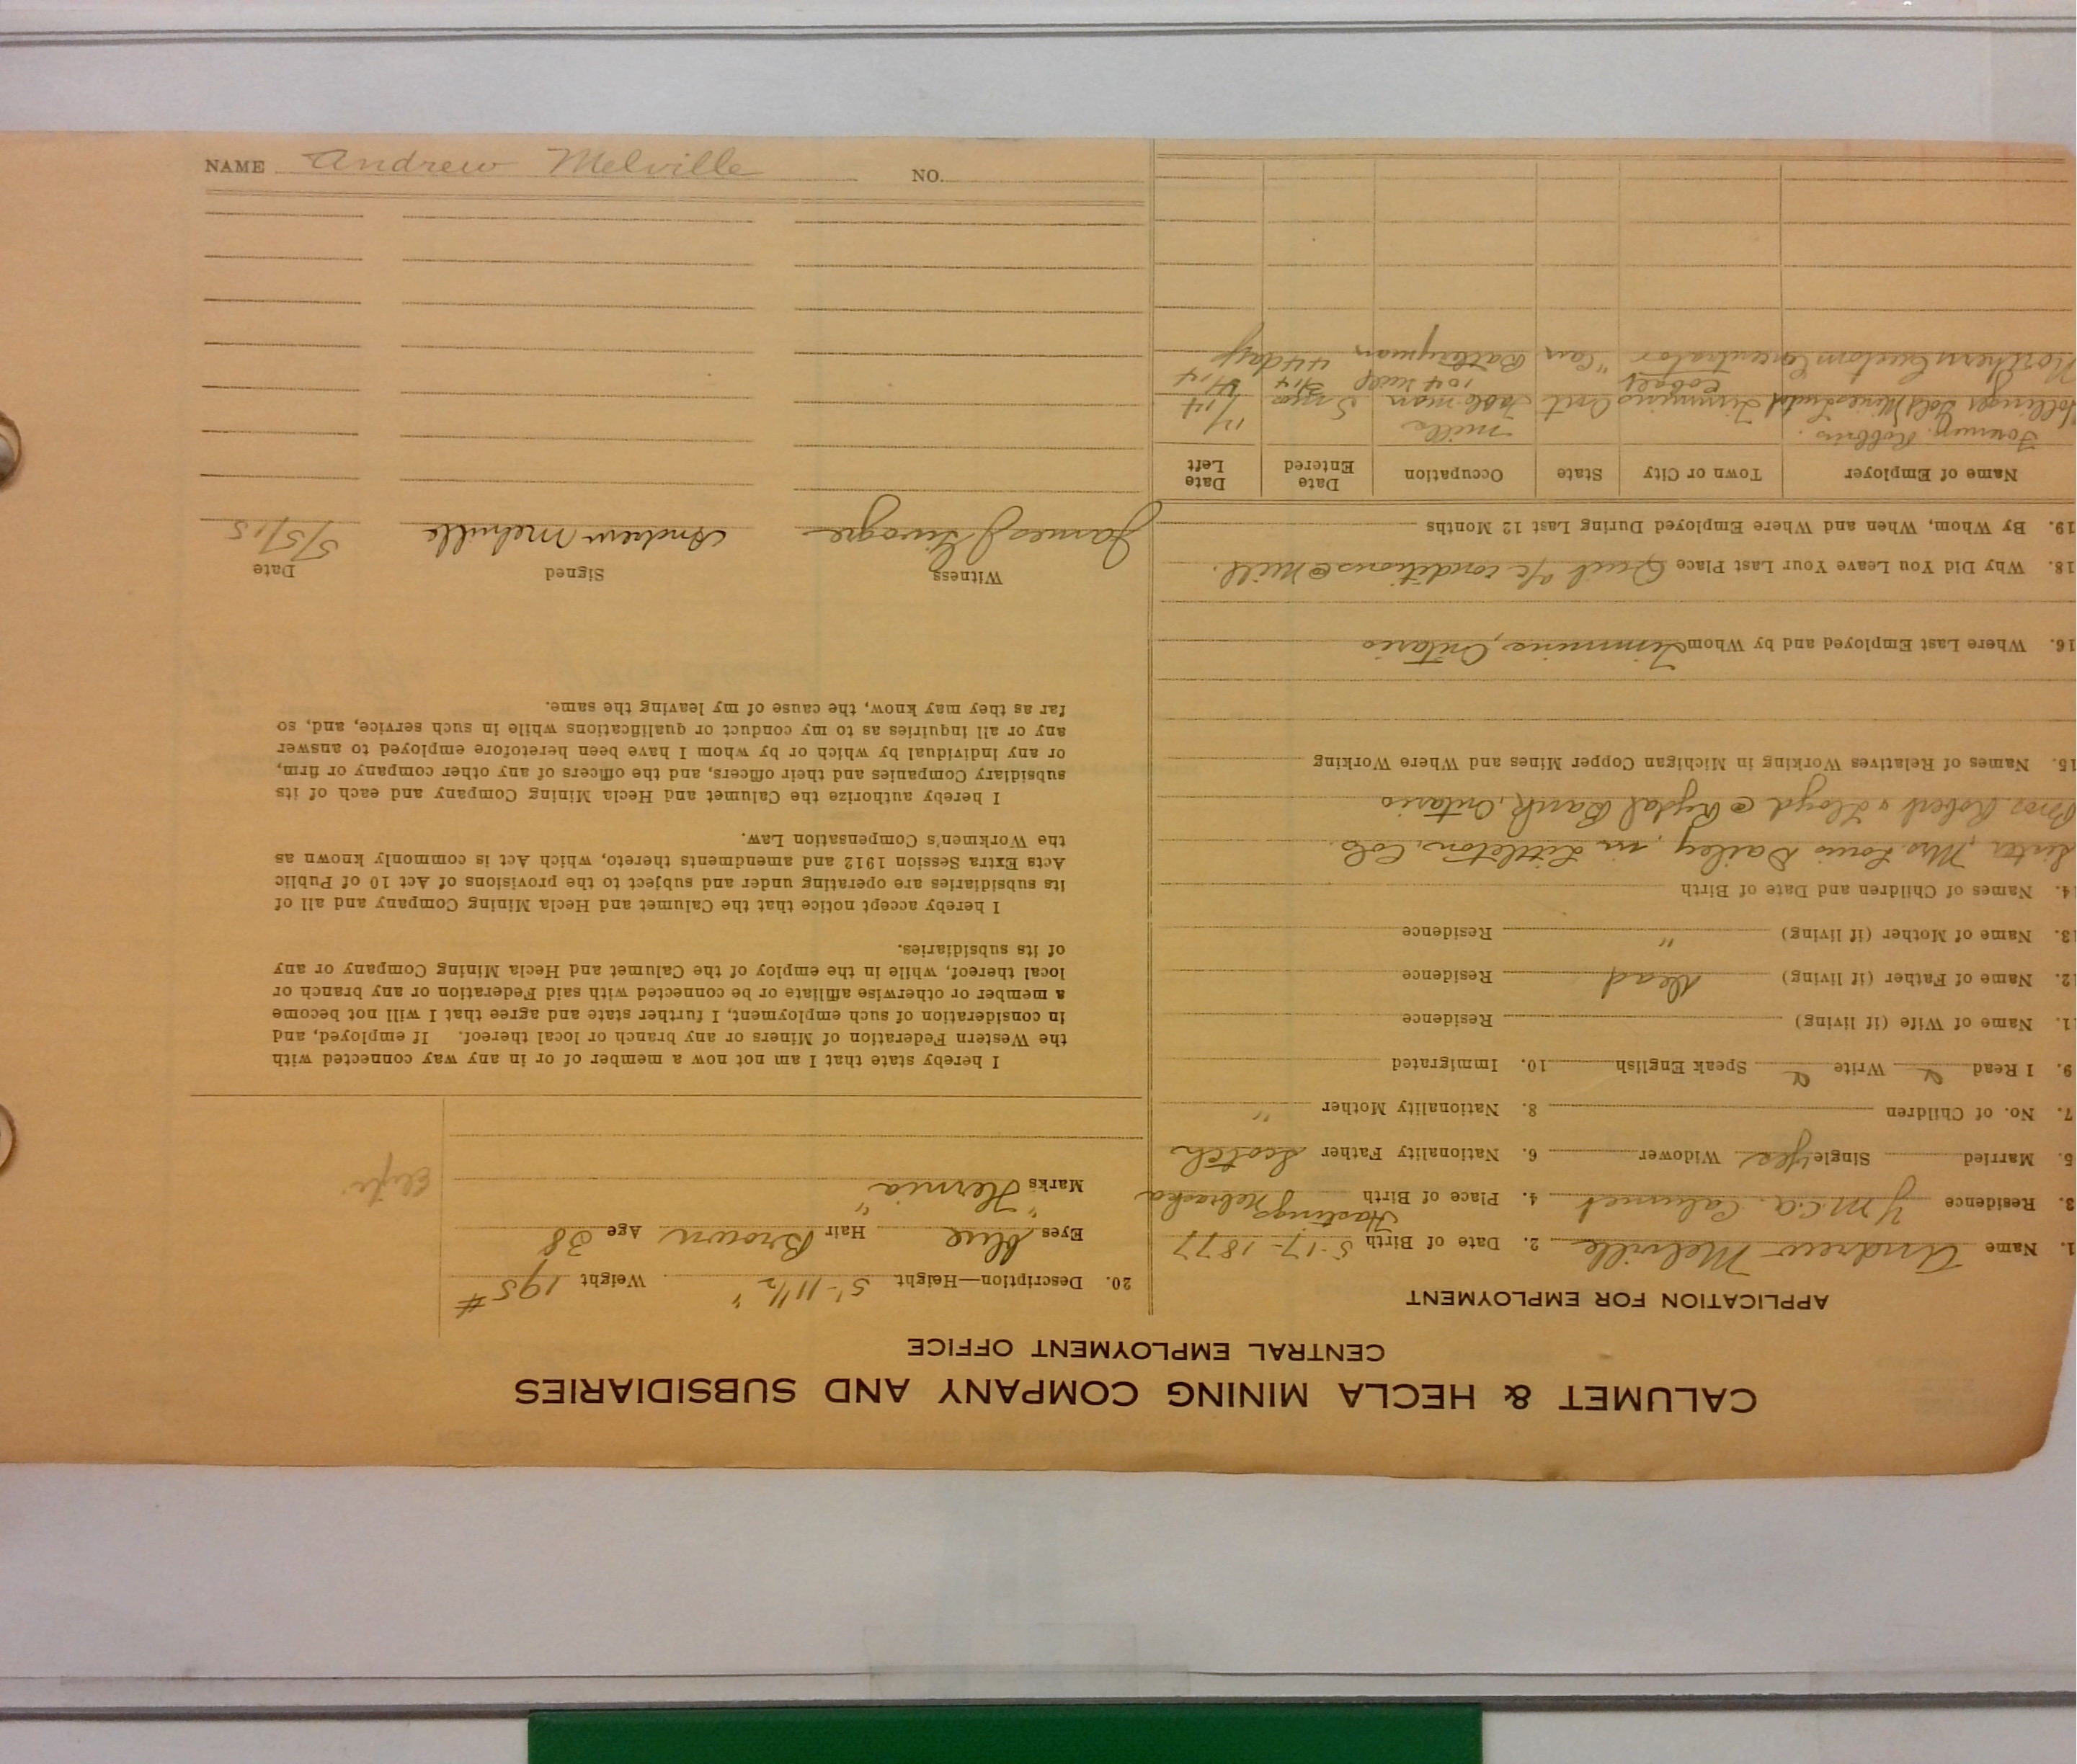 CALUMET & HECLA MINING COMPANY AND SUBSIDIARIES
CENTRAL EMPLOYMENT OFFICE
APPLICATION FOR EMPLOYMENT
1. Name Andrew Melville 2. Date of Birth 5-17-1877
3. Residence Y.M.C.A. Calumet 4. Place of Birth Hastings Nebraska
5. Married Single Yes Widower 6. Nationality Father Scotch
7. No. of Children 8. Nationality Mother "
9. I Read Write Speak English 10. Immigrated
11. Name of Wife (if living) Residence
12. Name of Father (if living) Dead Residence
13. Name of Mother (if living) " Residence
14. Names of Children and Date of Birth
Sister, Mrs Louis Dailey, in Littleton, Colo.
Bros. Robert & Lloyd @ Rydal Bank, Ontario
15. Names of Relatives Working in Michigan Copper Mines and Where Working
16. Where Last Employed and by Whom Timmins, Ontario
18. Why Did You Leave Your Last Place Quit a/c conditions @ mill.
19. By Whom, When and Where Employed During Last 12 Months
Name of Employer Town or City State Occupation Date Entered Date Left
Robbins. mill
Hollinger Gold Mines Timmins Ont man 5 mos
Cobalt
Northern Custom Concentrator " Can Batteryman 44 days
20. Description—Height 5'-11 1/2" Weight 195#
Eyes Blue Hair Brown Age 38
Marks "Hernia"
I hereby state that I am not now a member of or in any way connected with
the Western Federation of Miners or any branch or local thereof. If employed, and
in consideration of such employment, I further state and agree that I will not become
a member or otherwise affiliate or be connected with said Federation or any branch or
local thereof, while in the employ of the Calumet and Hecla Mining Company or any
of its subsidiaries.
I hereby accept notice that the Calumet and Hecla Mining Company and all of
its subsidiaries are operating under and subject to the provisions of Act 10 of Public
Acts Extra Session 1912 and amendments thereto, which Act is commonly known as
the Workmen's Compensation Law.
I hereby authorize the Calumet and Hecla Mining Company and each of its
subsidiary Companies and their officers, and the officers of any other company or firm,
or any individual by which or by whom I have been heretofore employed to answer
any or all inquiries as to my conduct or qualifications while in such service, and, so
far as they may know, the cause of my leaving the same.
Witness Signed Date
James J Andrew Melville 5/5/15
NAME Andrew Melville NO.